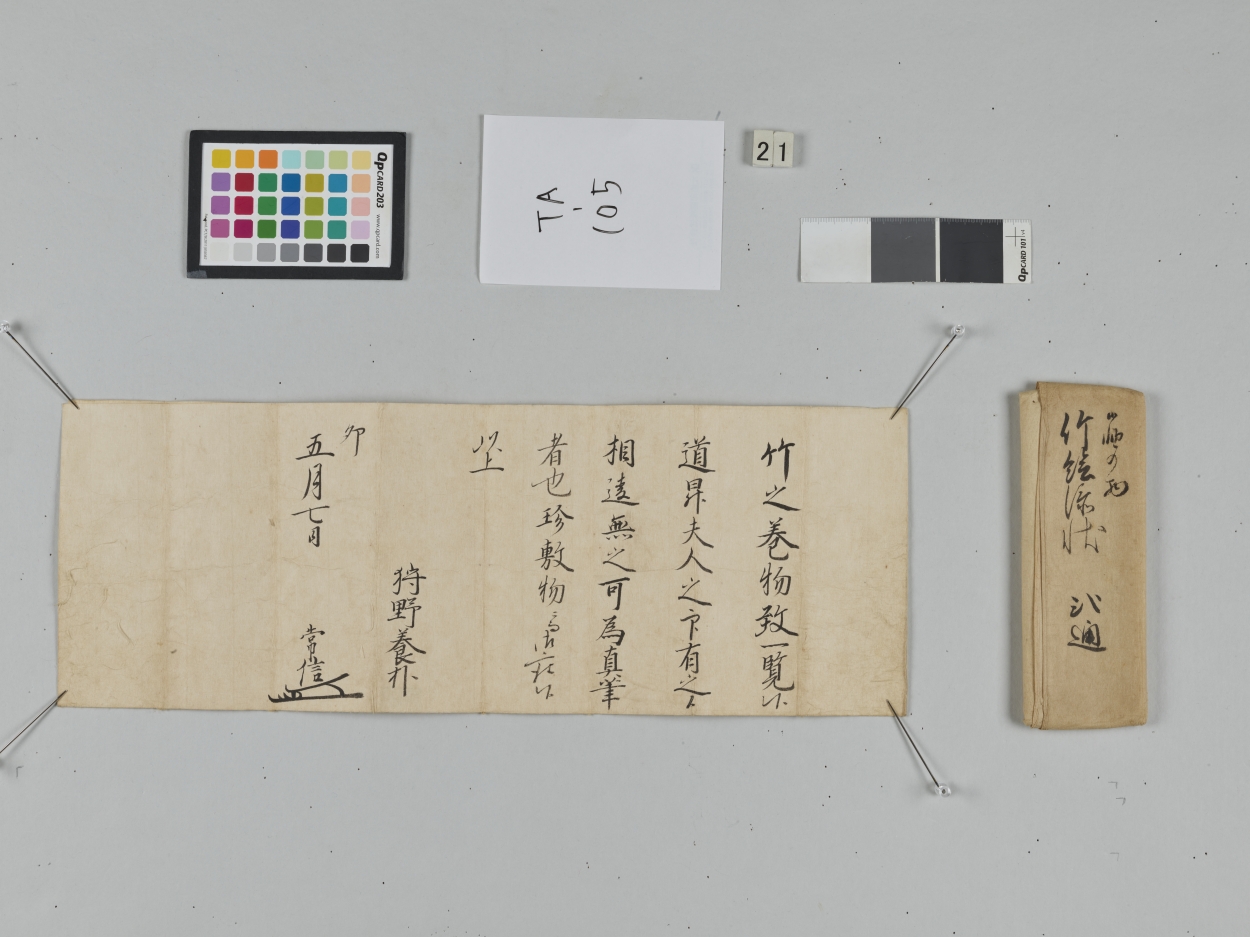 QpCARD 203 www.qpcard.com
TA-105
21
QpCARD 101 v4
竹之巻物致一覧候
道昇夫人之 有之候
相違無之可為真筆
者也珍敷物 候
以上
狩野養朴
卯
五月七日
常信
竹絵添状 弐通